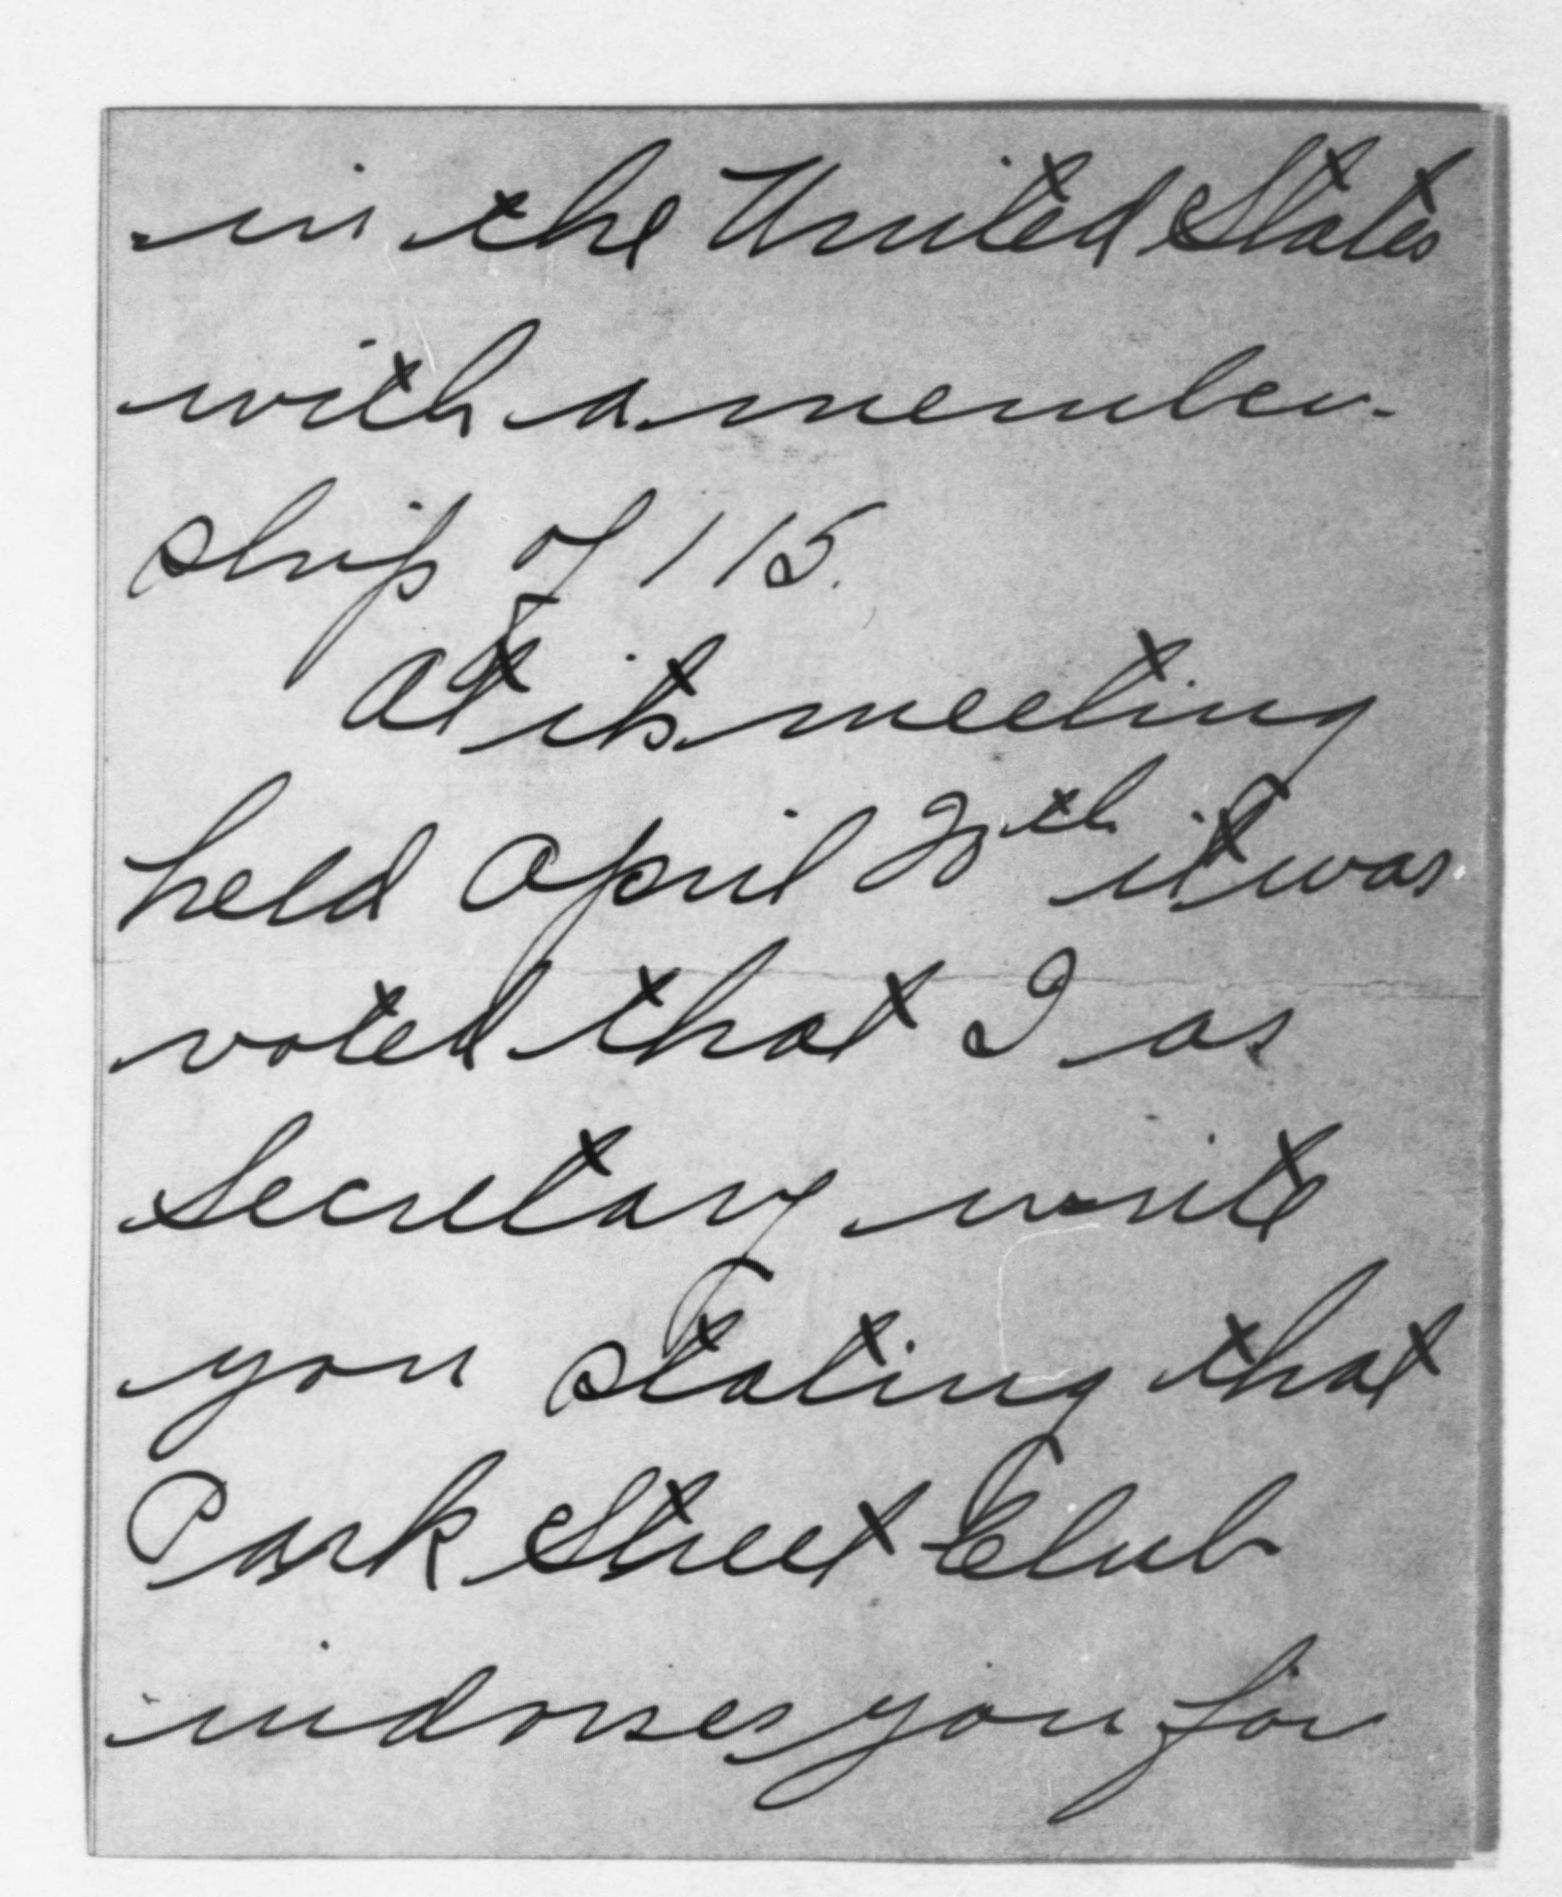 in the United States
with a member-
ship of 115.
At its meeting
held April 20th it was
voted that I as
Secretary write
you stating that
Park Street Club
indorses you for